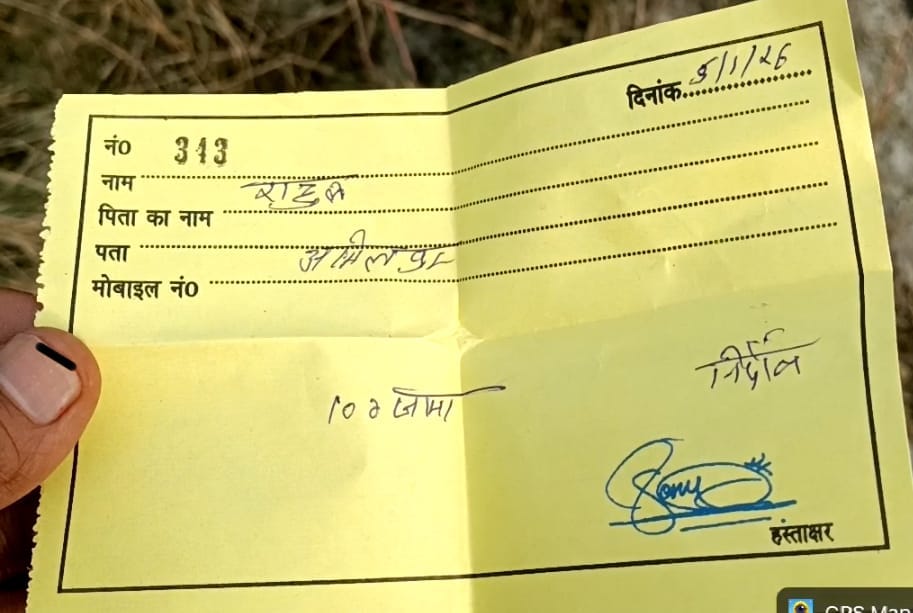 दिनांक 5/1/26
नं0 313
नाम
राहुल
पिता का नाम
पता
अमिलपुर
मोबाइल नं0
निर्दोष
10 रु जमा
हस्ताक्षर
GPS Map